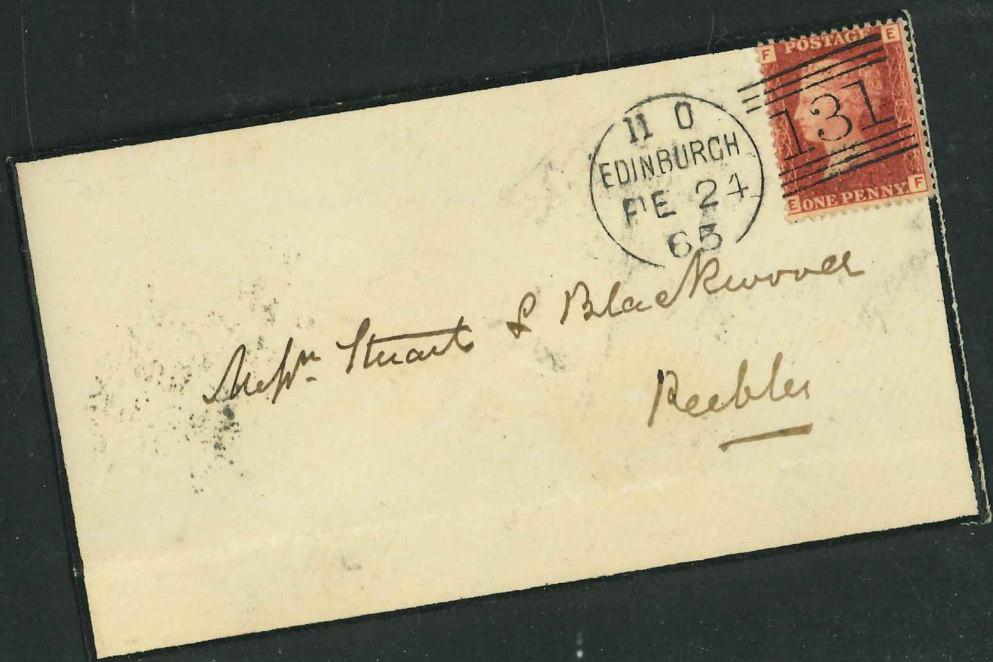 F POSTAGE E
131
E ONE PENNY F
11 O
EDINBURGH
FE 24
63
Messrs. Stuart & Blackwood
Peebles